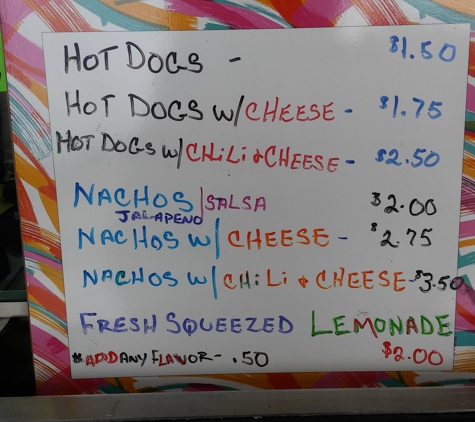 HOT DOGS - $1.50
HOT DOGS W/CHEESE - $1.75
HOT DOGS W/CHiLi & CHEESE - $2.50
NACHOS/SALSA $2.00
JALAPENO
NACHOS W/ CHEESE - $2.75
NACHOS W/ CHiLi & CHEESE - $3.50
FRESH SQUEEZED LEMONADE
*ADD ANY FLAVOR - .50 $2.00